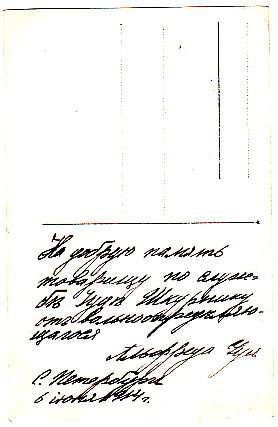 На добрую память
товарищу по служ-
бѣ Шкурнику
отъ вольноопредѣляю-
щагося
Альфреда
С. Петербург
6 июня 1914 г.